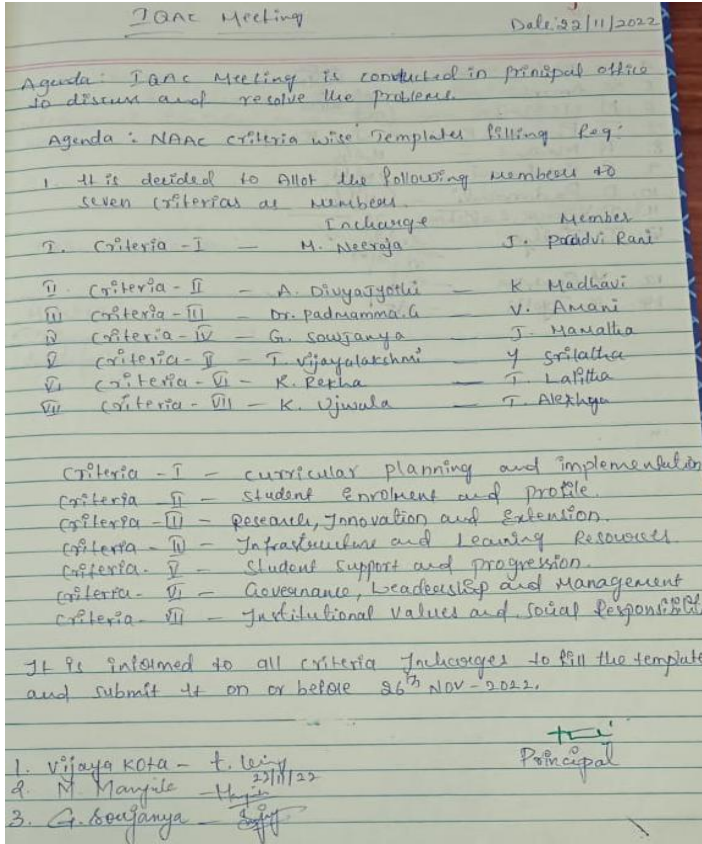 IQAC Meeting
Date: 22/11/2022
Agenda: IQAC Meeting is conducted in prinipal office
to discuss and resolve the problems.
Agenda : NAAC criteria wise Templates filling Reg:
1. It is decided to Allot the following members to
seven criterias as members.
Incharge Member
I. Criteria - I — M. Neeraja J. Paddvi Rani
II. Criteria - II — A. Divyajyothi — K Madhavi
III Criteria - III — Dr. Padmamma.G — V. Amani
IV Criteria - IV — G. Sowjanya — J. Mamatha
V Criteria - V — T. Vijayalakshmi — Y Srilatha
VI Criteria - VI — K. Rekha — T. Lalitha
VII Criteria - VII — K. Ujwala — T. Alekhya
Criteria - I — curricular planning and implementation
Criteria II — Student Enrolment and profile.
Criteria - III — Research, Innovation and Extension.
Criteria - IV — Infrastructure and Learning Resources.
Criteria - V — Student support and progression.
Criteria - VI — Governance, Leadership and Management
Criteria - VII — Institutional values and Social Responsibilit
It is informed to all criteria Incharges to fill the template
and submit it on or before 26th NOV - 2022.
Principal
1. Vijaya Kota —
22/11/22
2. M. —
3. G. Soujanya —